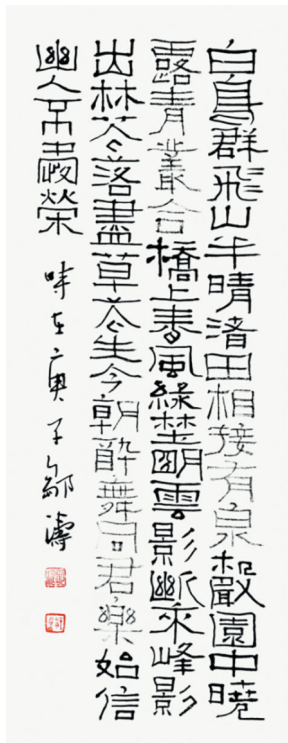 白鳥群飛山半晴渚田相接有泉聲園中曉
露青叢合橋上春風綠埜明雲影斷來峰影
出林花落盡草花生今朝醉舞同君樂始信
幽人不愛榮 時在庚子鄒濤